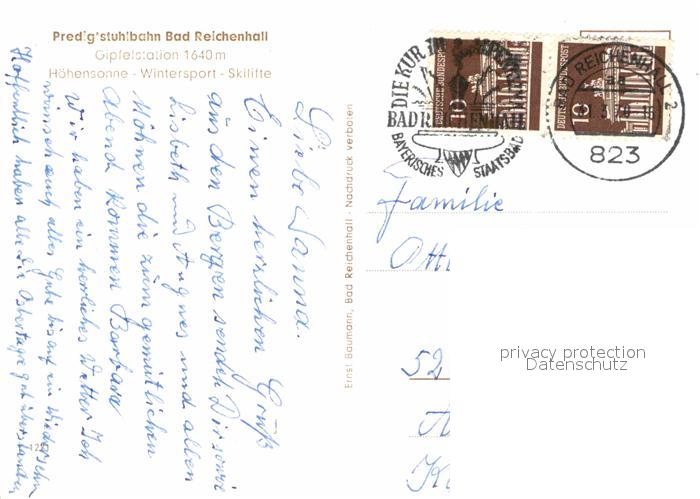 Predigtstuhlbahn Bad Reichenhall
Gipfelstation 1640m
Höhensonne - Wintersport - Skilifte
Liebe Sanna.
Einen herzlichen Gruß
aus den Bergen sendet Dir sowie
Lisbeth und Agnes und allen
Möhnen die zum gemütlichen
Abend kommen Barbara
Wir haben ein herrliches Wetter Ich
wünsche auch alles Gute bis auf ein Wiedersehn
Hoffentlich haben alle die Ostertage gut überstanden
Ernst Baumann, Bad Reichenhall - Nachdruck verboten
DIE KUR IN
BAD REICHENHALL
BAYERISCHES STAATSBAD
DEUTSCHE BUNDESPOST
10
DEUTSCHE BUNDESPOST
10
BAD REICHENHALL 2
823
Familie
Ott
52
privacy protection
Datenschutz